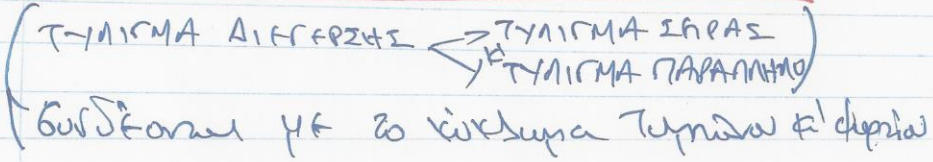 (ΤΥΛΙΓΜΑ ΔΙΕΓΕΡΣΗΣ <-> ΤΥΛΙΓΜΑ ΣΕΙΡΑΣ)
κ ΤΥΛΙΓΜΑ ΠΑΡΑΛΛΗΛΟ
συνδέονται με το κύκλωμα τυμπάνου κ' φορτίου